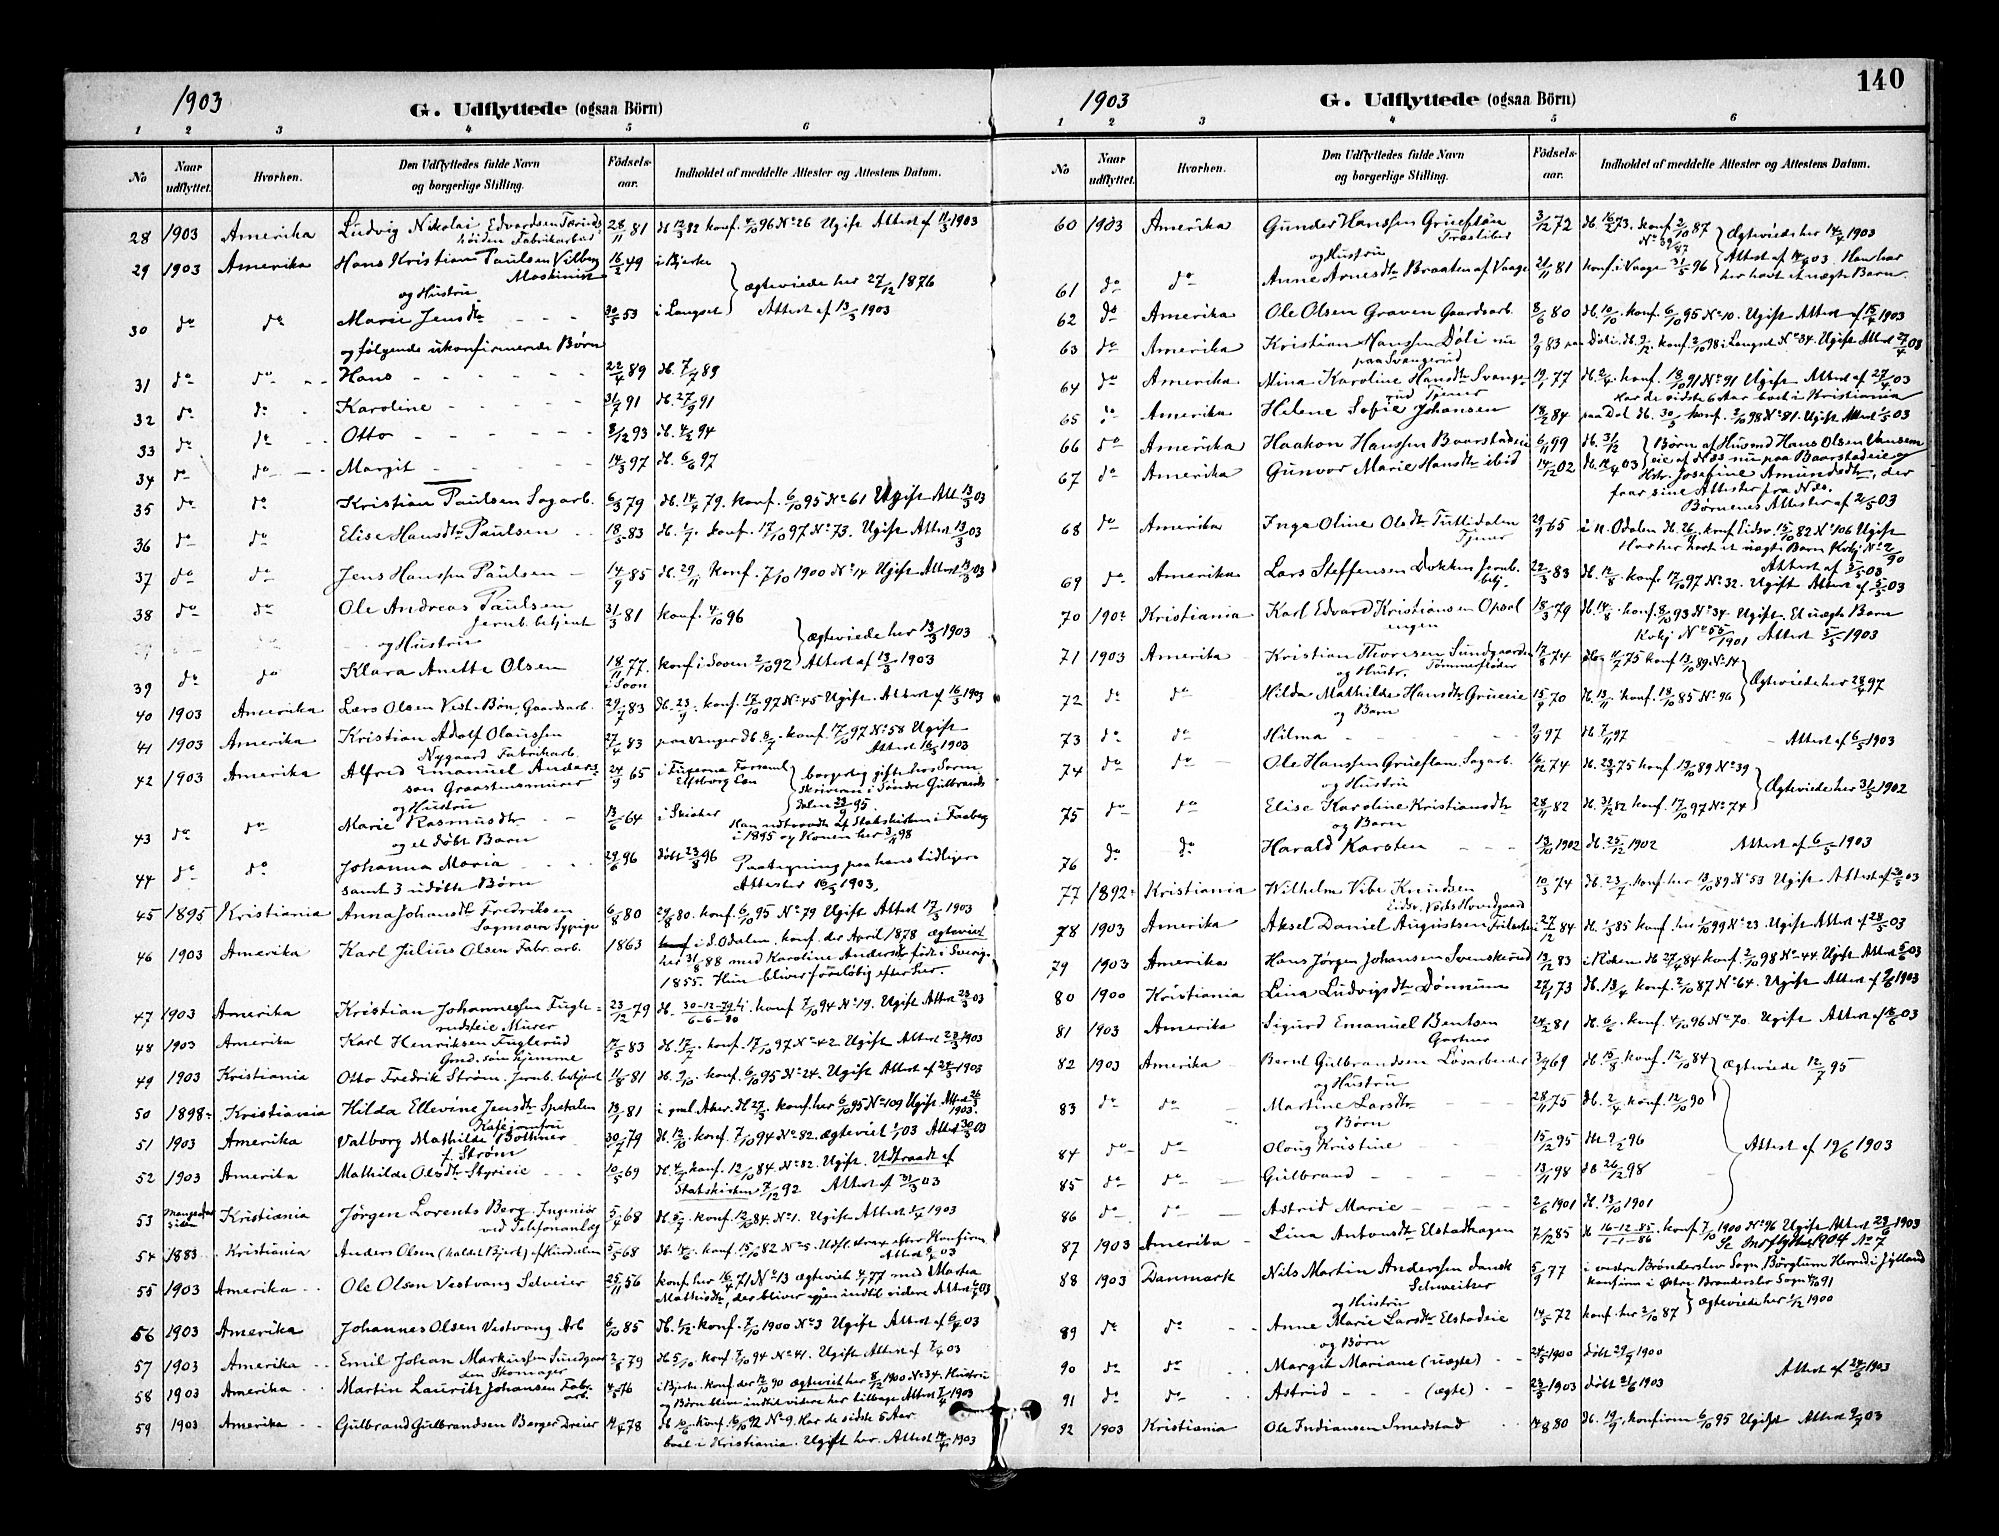 1903
G. Udflyttede (ogsaa Börn)
1 2 3 4 5 6
No
Naar udflyttet.
Hvorhen.
Den Udflyttedes fulde Navn og borgerlige Stilling.
Födsels-aar.
Indholdet af meddelte Attester og Attestens Datum.
28 1903 Amerika Ludvig Nikolai Edvardsen 28/11 81 db 12/3 82 konf. 4/10 96 No 26 Ugift Attest af 11/3 1903
høiden Fabrikarbd
29 1903 Amerika Hans Kristian Paulsen Vilberg 16/2 49 i Bjerke
Maskinist
og Hustru
ægteviede her 27/12 1876
30 do do Marie Jensdtr 30/5 53 i Langset Attest af 13/3 1903
og følgende ukonfirmerede Børn
31 do do Hans 22/4 89 db. 7/7 89
32 do do Karoline 31/7 91 db. 27/9 91
33 do do Otto 8/12 93 db. 4/2 94
34 do do Margit 14/3 97 db. 6/6 97
35 do do Kristian Paulsen Sagarb. 6/3 79 db. 14/4 79. konf. 6/10 95 No 61 Ugift Att. 13/3 03
36 do do Elise Hansdtr Paulsen 18/5 83 db. 1/7 konf. 17/10 97 No 73. Ugift Attest 13/3 03
37 do do Jens Hanssen Paulsen 14/9 85 db. 29/11 konf. 7/10 1900 No 14 Ugift Attest 13/3 03
38 do do Ole Andreas Paulsen 31/3 81 konf. 4/10 96
Jernb. betjent
og Hustru
ægteviede her 13/3 1903
39 do do Klara Anette Olsen 18/11 77. konf i Soon 2/10 92 Attest af 13/3 1903
i Soon
40 1903 Amerika Lars Olsen Vestr. Bön, Gaardsarb. 29/7 83 db. 23/9. konf. 17/10 97 No 45 Ugift. Attest af 16/3 1903
41 1903 Amerika Kristian Adolf Olaussen 27/4 83 paa Vanger db. 8/7. konf. 17/10 97 No 58 Ugift
Nygaard Fabrikarb. Attest 16/3 1903
42 1903 Amerika Alfred Emanuel Anders- 24/9 65
son Graastensmurer
og Hustru
Elfsborg Län
borgerlig gifte hos Soren
skriveren i Søndre Gulbrands
dalen 23/9 95
43 do do Marie Rasmusdtr 13/6 64 i Skiaker
og et døbt Barn
Han udtraadt af Statskirken i Faaberg
i 1895 og Konen her 3/11 98
44 do do Johanna Maria 29/6 96 døbt 23/8 96 Paategning paa hans tidligere
samt 3 udøbte Børn Attester 16/3 1903.
45 1895 Kristiania Anna Johansdtr Fredriksen 6/8 80 29/8 80. konf. 6/10 95 No 79 Ugift Attest 17/3 1903
Sagmoen Sypige
46 1903 Amerika Karl Julius Olsen Fabr. arb. 1863 i S. Odalen. konf. der April 1878 ægteviet
her 31/8 88 med Karoline Andersdtr født i Sverig.
1855. Hun bliver foreløbig efter her.
47 1903 Amerika Kristian Johannessen Fugle- 23/12 79 db. 30-12-79 hj. konf 7/10 94 No 19. Ugift Attest 23/3 03
rudseie Murer 6-6-80
48 1903 Amerika Karl Henriksen Fuglerud 17/5 83 db. 17/7. konf. 17/10 97 No 42 Ugift Attest 23/3 1903
Grd. søn hjemme
49 1903 Kristiania Otto Fredrik Strøm. Jernb. betjent 11/8 81 db. 9/10. konf. 6/10 95 No 24. Ugift Attest af 24/3 1903
50 1898 Kristiania Hilda Ellevine Jensdtr Spetalen 13/1 81 i gml Aker. db 27/3. konf. her 6/10 95 No 109 Ugift Attest 26/3
Kafejomfru 1903.
51 1903 Amerika Valborg Mathilde Bothner 30/7 79 db. 12/10. konf. 7/10 94 No 82. ægteviet 1/1 03 Attest 30/3 03
f. Strøm
52 1903 Amerika Mathilde Olsdtr Styrieie 10/5 69 db. 4/7 konf. 12/10 84 No 82. Ugift. Udtraadt af
Statskirken 7/12 92 Attest af 31/3 03
53 Mange Aar siden Kristiania Jörgen Lorents Berg. Ingeniør 5/4 68 db. 5/7. konf. 12/10 84. No 1. Ugift Attest 1/4 1903
ved Telefonanlæg
54 1883 Kristiania Anders Olsen (kaldet Bjerk) af Hurdalen 5/5 68 db. 14/6. konf. 15/10 82 No 5. Udfl. strax efter Konfirm
Attest 2/4 03
55 1903 Amerika Ole Olsen Vestvang Selveier 25/11 56 konf her 16/4 71 No 13 ægteviet 4/1 77 med Marthea
Mathisdtr, der bliver igjen indtil videre Attest 6/4 03
56 1903 Amerika Johannes Olsen Vestvang Arb 6/10 85 db. 1/12. konf. 7/10 1900 No 3 Ugift Attest af 6/4 03
57 1903 Amerika Emil Johan Markussen Sundgaar 2/8 79 db 5/10. konf. 7/10 94 No 41. Ugift Attest af 7/4 03
den Skomager
58 1903 Amerika Martin Lauritz Johansen Fabr. 4/5 76 i Bjerke. Konf der 12/10 90 ægteviet her 8/12 1900 No 34. Hustru
arb. og Børn blive indtil videre her tilbage Attest 7/4 1903
59 1903 Amerika Gulbrand Gulbrandsen Berger Dreier 14/4 78 db 10/6. konf. 16/10 92 No 9. Har de sidste 5 Aar
boet i Kristiania. Ugift her. Attest 14/4 1903
140
1903
G. Udflyttede (ogsaa Börn)
1 2 3 4 5 6
No
Naar udflyttet.
Hvorhen.
Den Udflyttedes fulde Navn og borgerlige Stilling.
Födsels-aar.
Indholdet af meddelte Attester og Attestens Datum.
60 1903 Amerika Gunder Hanssen Grueflöten 3/12 72 db. 16/2 73. konf. 2/10 87
Træsliber No 39/87
og Hustru
Ægteviede her 14/4 1903
61 do do Anne Arnesdtr Braaten af Vaage 21/11 81 konf. i Vaage 31/5 96 Attest af 14/4 03. Hun har
her havt et uægte Barn
62 do Amerika Ole Olsen Graven Gaardsarb. 8/6 80 db. 10/10. konf. 6/10 95 No 10. Ugift Attest af 15/4 1903
63 do Amerika Kristian Hanssen Døli nu 9/9 83 paa Døli. db. 9/12. konf. 2/10 98 i Langset No 34. Ugift Attest 27/4 03
paa Svangerud
64 do Amerika Mina Karoline Hansdtr Svange- 19/1 77 db. 2/4. konf. 18/10 91 No 91 Ugift Attest af 27/4 03
rud Tjener Har de sidste 6 Aar boet i Kristiania
65 do Amerika Helene Sofie Johansen 18/2 84 paa Dal db. 30/3 konf. 2/10 98 No 81. Ugift Attest 1/5 03
66 do Amerika Haakon Hanssen Baarstadeie 6/11 99 db. 31/12 Børn af Husmd Hans Olsen Vansem
67 do Amerika Gunvor Marie Hansdtr ibid 14/12 02 db. 12/4 03 eie af Næs nu paa Baarstadeie og
Hstr. Josefine Amundsdtr, der
faar sine Attester fra Næs.
Børnenes Attester af 2/5 03
68 do Amerika Inga Oline Olsdtr Tuttidalen 29/9 65 i N. Odalen db. 26/11. konf Eidsv. 15/10 82 No 106 Ugift
Tjener Har her havt et uægte Barn Kirkbj No 2/90
Attest af 5/5 03
69 do Amerika Lars Steffensen Dokken Jernb. 22/3 83 db. 12/8. konf. 17/10 97 No 32. Ugift Attest af 5/5 03
btj.
70 1902 Kristiania Karl Edvard Kristiansen Opsal 18/3 79 db. 14/8. konf. 8/10 93 No 34. Ugift. Et uægte Barn
engen Kirkbj No 55/1901 Attest 5/5 1903
71 1903 Amerika Kristian Thoresen Sundgaarden 17/8 74 11/7 75 konf 13/10 89 No 14
og Hustr. Tømmerfløder
Ægteviede her 28/4 97
72 do do Hilda Mathilde Hansdtr Grueeie 15/9 70 db. 13/11. konf. 18/10 85 No 96
og Barn
73 do do Hilma 9/9 97 db 7/11 97 Attest af 6/5 1903
74 do do Ole Hanssen Grueflaten. Sagarb. 16/12 74 db. 29/3 75 konf. 13/10 89 No 39
og Hustru
Ægteviede her 31/5 1902
75 do do Elise Karoline Kristiansdtr 28/11 82 db. 31/12 82 konf. 17/10 97 No 74
og Barn
76 do do Harald Karsten 13/10 1902 db. 25/12 1902 Attest af 6/5 1903
77 1892 Kristiania Wilhelm Vibe Knudsen 10/3 74 db. 23/7. konf her 13/10 89 No 53 Ugift Attest af 20/5 03
Eidsv. Værks Hovedgaard
78 1903 Amerika Aksel Daniel Augustsen 27/12 84 db. 1/3 85 konf. her 1/10 99 No 23. Ugift Attest af 28/5 03
79 1903 Amerika Hans Jørgen Johansen Svenskerud 13/12 83 i Holen. db 27/4 84 konf. 2/10 98 No 44. Ugift Attest 5/6 03
80 1900 Kristiania Lina Ludvigsdtr Dønnum 27/1 73 db. 13/4 konf. 2/10 87 No 64. Ugift Attest af 9/6 1903
81 1903 Amerika Sigurd Emanuel Bentsen 24/2 81 db. 6/6. konf. 4/10 96 No 70. Ugift Attest af 18/6 03
Gartner
82 1903 Amerika Bernt Gulbrandsen Løsarbeider 3/7 69 db. 15/8. konf. 12/10 84 Ægteviede 12/7 95
og Hustru
83 do do Martine Larsdtr 28/11 75 db. 2/4. konf. 12/10 90
og Børn
84 do do Oloug Kristine 15/12 95 db 9/2 96 Attest af 19/6 1903
85 do do Gulbrand 13/11 98 db 26/12 98
86 do do Astrid Marie 2/6 1901 db. 13/10 1901
87 1903 Amerika Lina Antonsdtr Elstadhagen 7/12 85 db 16-12-85. konf. 7/10 1900 No 96 Ugift Attest 23/6 1903
1-1-86 Se Indflyttede 1904 No 7
88 1903 Danmark Nils Martin Anderssen dansk 5/9 77 i vestre Brønderslev Sogn Börglum Herred i Jylland
Schweitser konfirm i Østre Brønderslev Sogn 4/10 91
og Hustru
Ægteviede her 1/12 1900
89 do do Anne Marie Larsdtr Elstadeie 14/5 72 konf. her 2/10 87
og Børn
90 do do Margit Mariane (uægte) 24/5 1900 døbt 29/7 1900
Attest af 24/6 1903
91 do do Astrid (ægte) 23/3 1903 døbt 21/6 1903
92 1903 Kristiania Ole Indiansen Smedstad 14/8 80 db. 19/9. konfirm 6/10 95 Ugift Attest 9/7 03